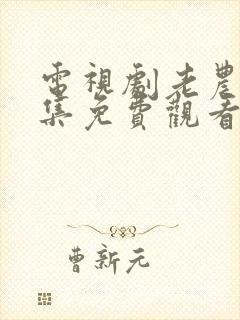 電視劇老農
集免費觀看
曹新元